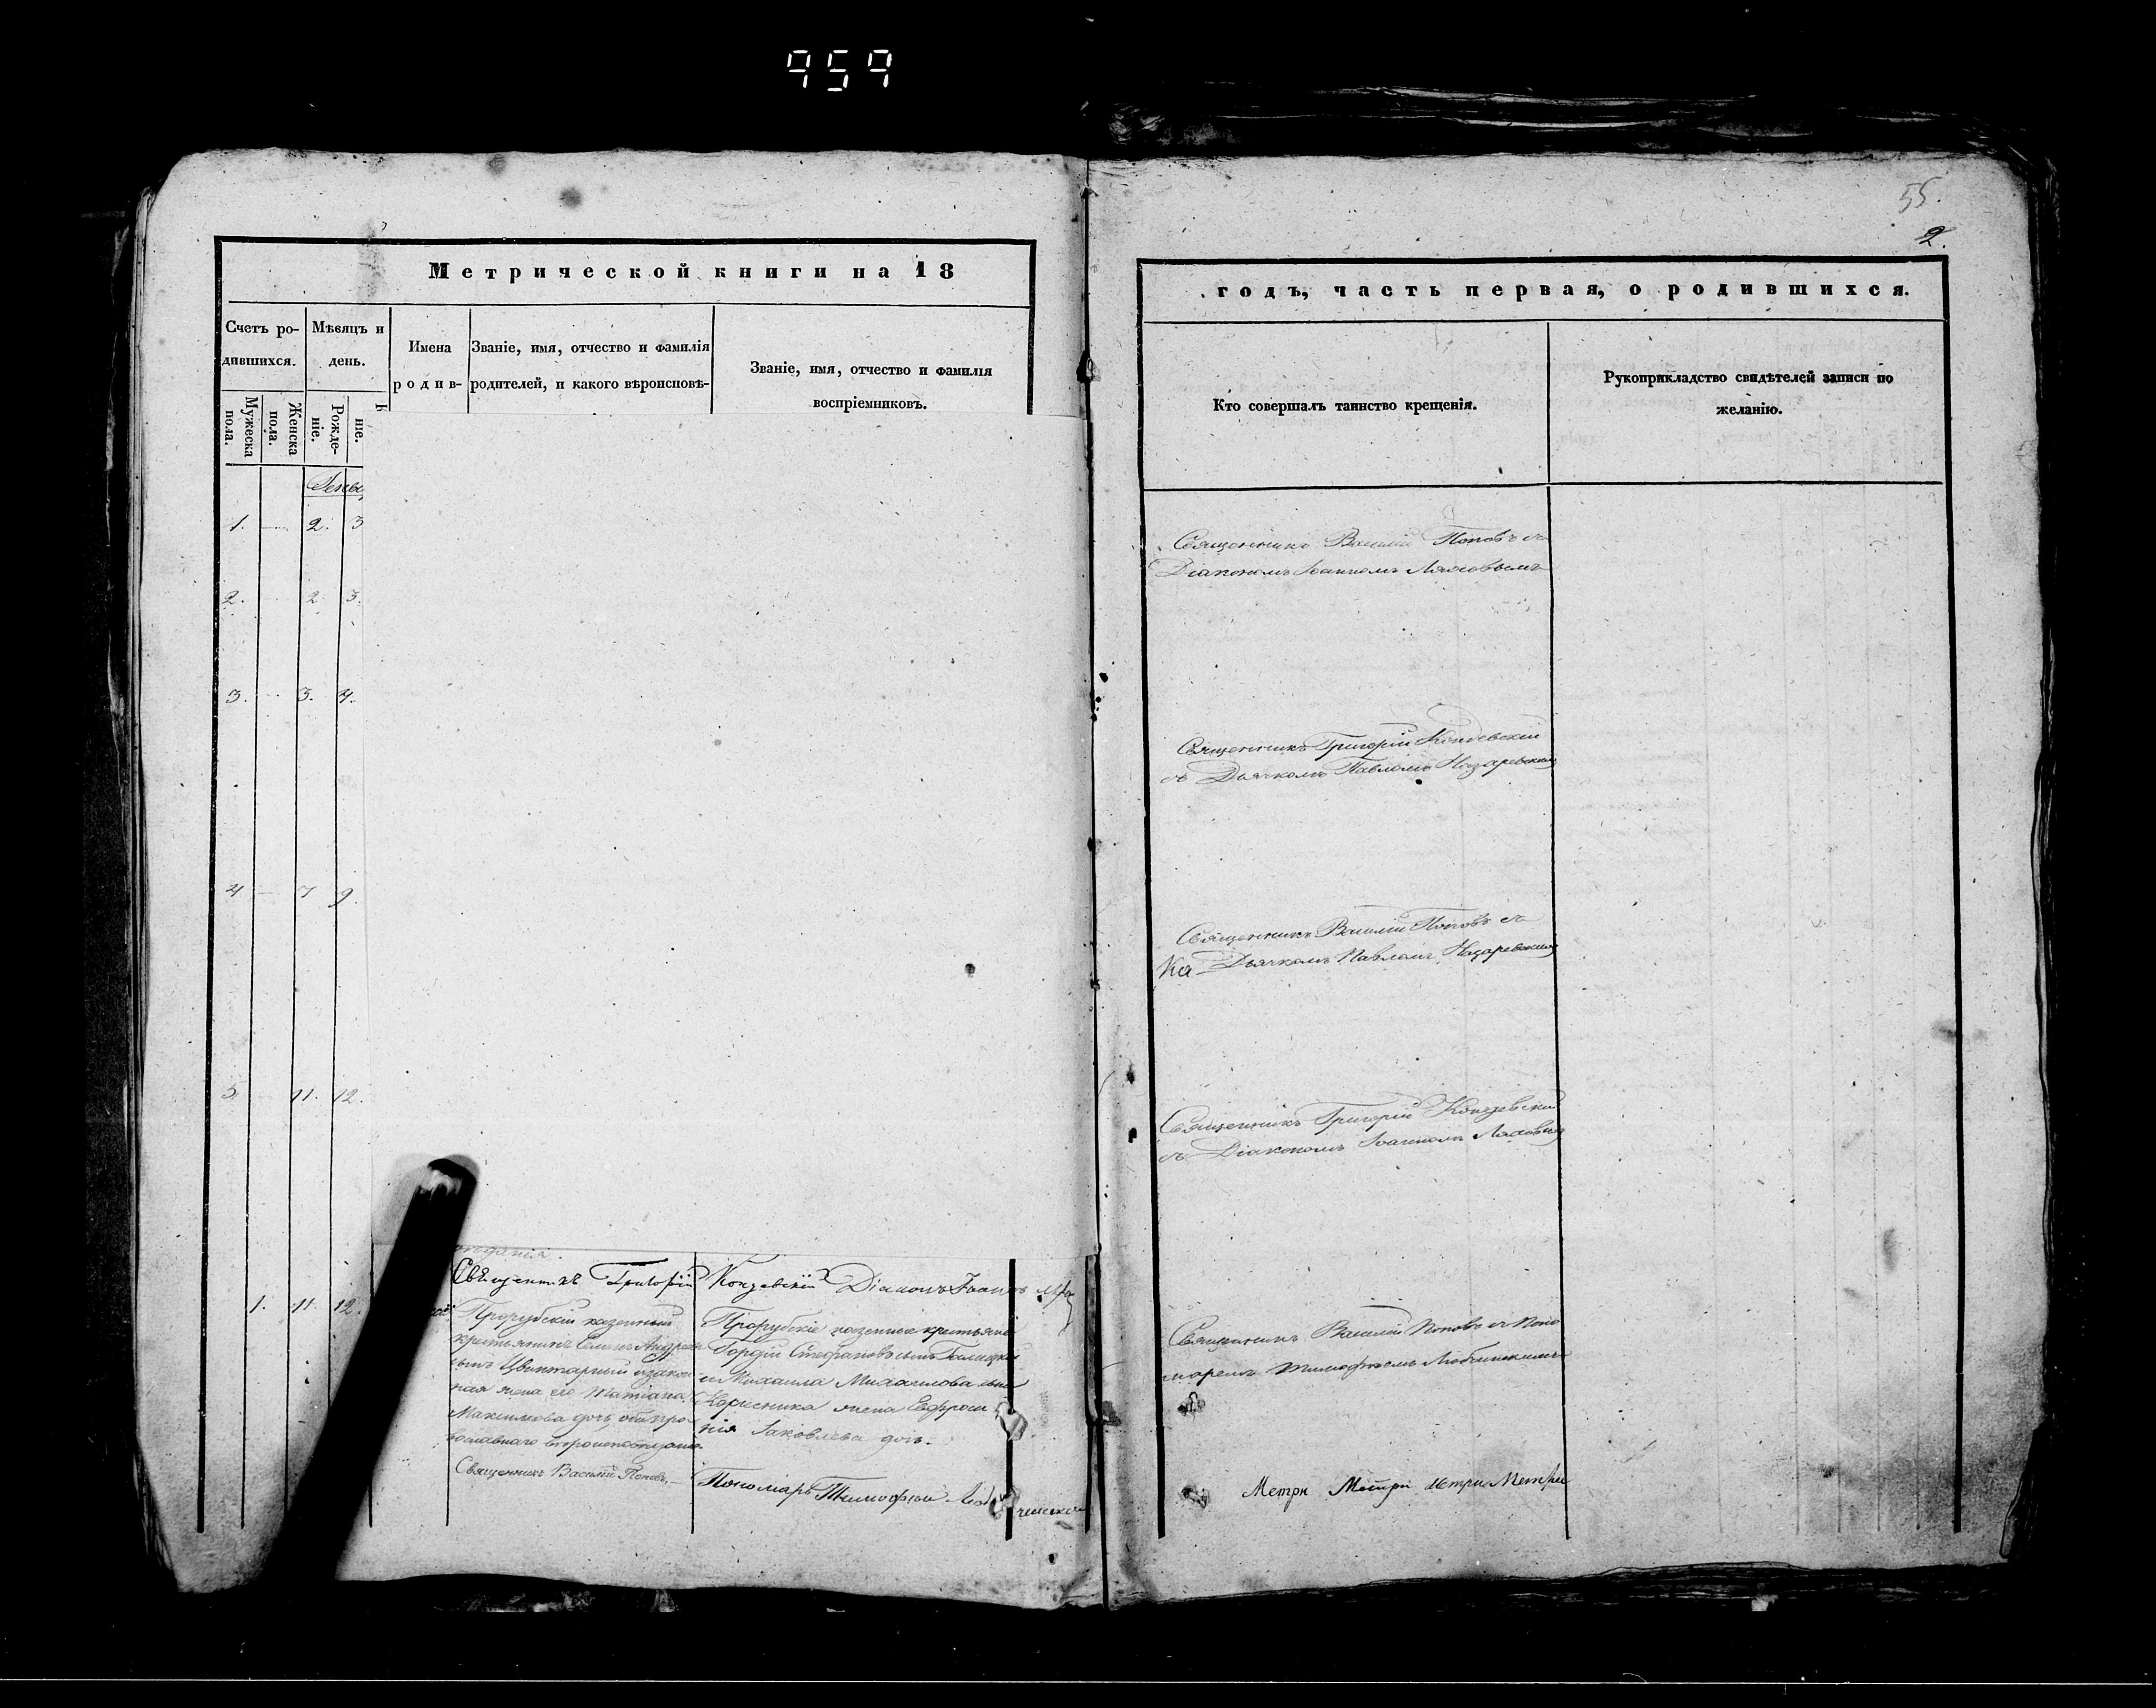 959
55.
2.
Метрической книги на 18
Счетъ ро-
дившихся.
Мѣсяцъ и
день.
Имена
родив-
Званіе, имя, отчество и фамилія
родителей, и какого вѣроисповѣ-
Званіе, имя, отчество и фамилія
воспріемниковъ.
Мужеска
пола.
Женска
пола.
Рожде-
ніе.
ніе.
1. 2. 3
2. 2 3.
3. 3. 4.
4 7 9.
5 11. 12.
Священникъ Григорій
Діаконъ Іоаннъ
1. 11. 12.
Прорубскій казенный
крестьянинъ Семенъ Андреевъ
сынъ Цвинтарный и закон
ная жена его Татіана
Максимова дочь, оба пра
вославнаго вѣроисповѣданія.
Священникъ Василій Поповъ.
Прорубскіе казенные крестьяне
Гордій Стефановъ сынъ
и Михаила Михаилова сына
жена Евфроси
нія Іаковлева дочь.
Пономарь Тимофей
годъ, часть первая, о родившихся.
Кто совершалъ таинство крещенія.
Рукоприкладство свидѣтелей записи по
желанію.
Священникъ Василій Поповъ съ
Діакономъ Іоанномъ
Священникъ Григорій
съ Дьячкомъ Павломъ Назаревскимъ
Священникъ Василій Поповъ съ
Ка Дьячкомъ Павломъ Назаревскимъ
Священникъ Григорій
съ Діакономъ Іоанномъ
Священникъ Василій Поповъ съ Поно
маремъ Тимофеемъ
Метри Метри Метри Метри